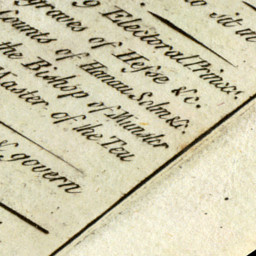 to sit in
Electoral Princes.
graves of Hesse &c.
Counts of Hanau, Solms &c.
the Bishop of Munster
Master of the Teu
& govern